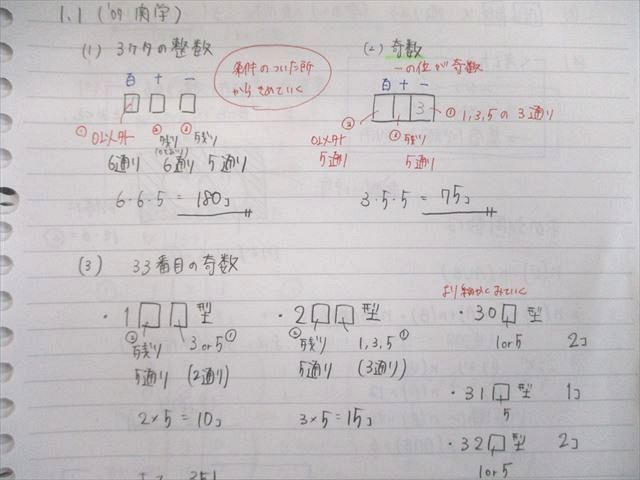 1.1 ('09 関学)
(1) 3ケタの整数
条件のついた所
からきめていく
百 十 一
① ② ③
0以外 残り 残り
6通り 6通り 5通り
6・6・5 = 180コ
(2) 奇数
一の位が奇数
百 十 一
3
① 1,3,5の3通り
② ③
0以外 残り
5通り 5通り
3・5・5 = 75コ
(3) 33番目の奇数
・1□□型
② 残り 3or5 ①
5通り (2通り)
2×5=10コ
・2□□型
② 残り 1,3,5 ①
5通り (3通り)
3×5=15コ
より細かくみていく
・30□型
1or5 2コ
・31□型 1コ
5
・32□型 2コ
1or5
351